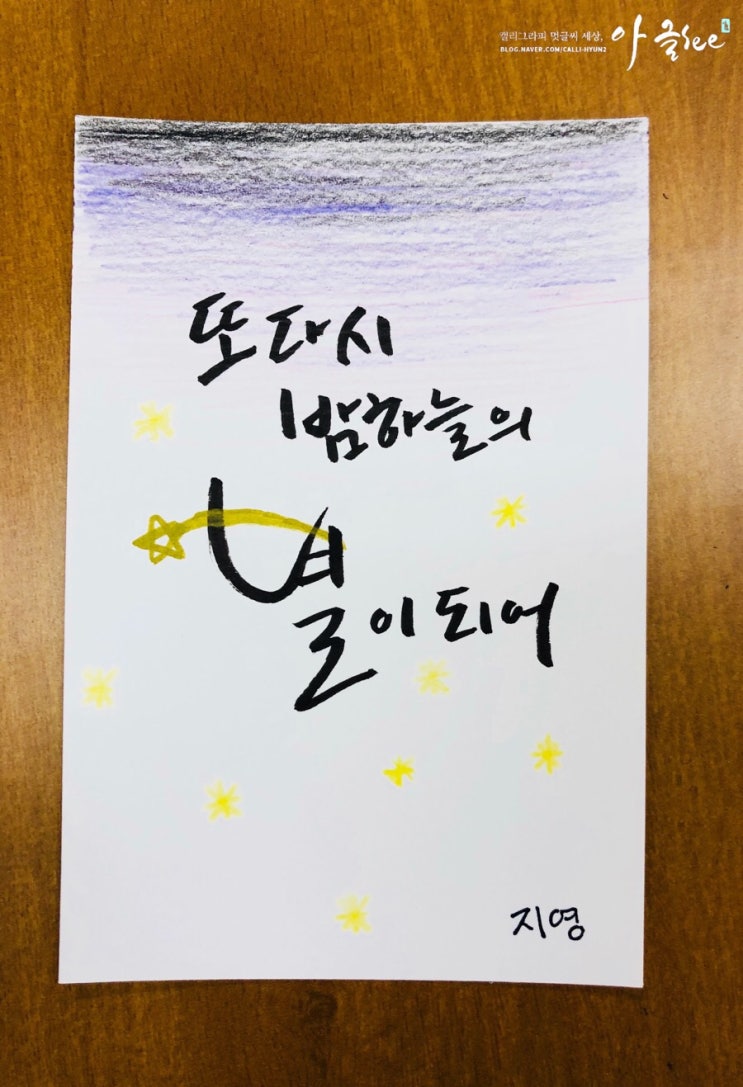 캘리그라피 멋글씨 세상,
BLOG.NAVER.COM/CALLI-HYUN2
아글see
또다시
밤하늘의
별이되어
지영